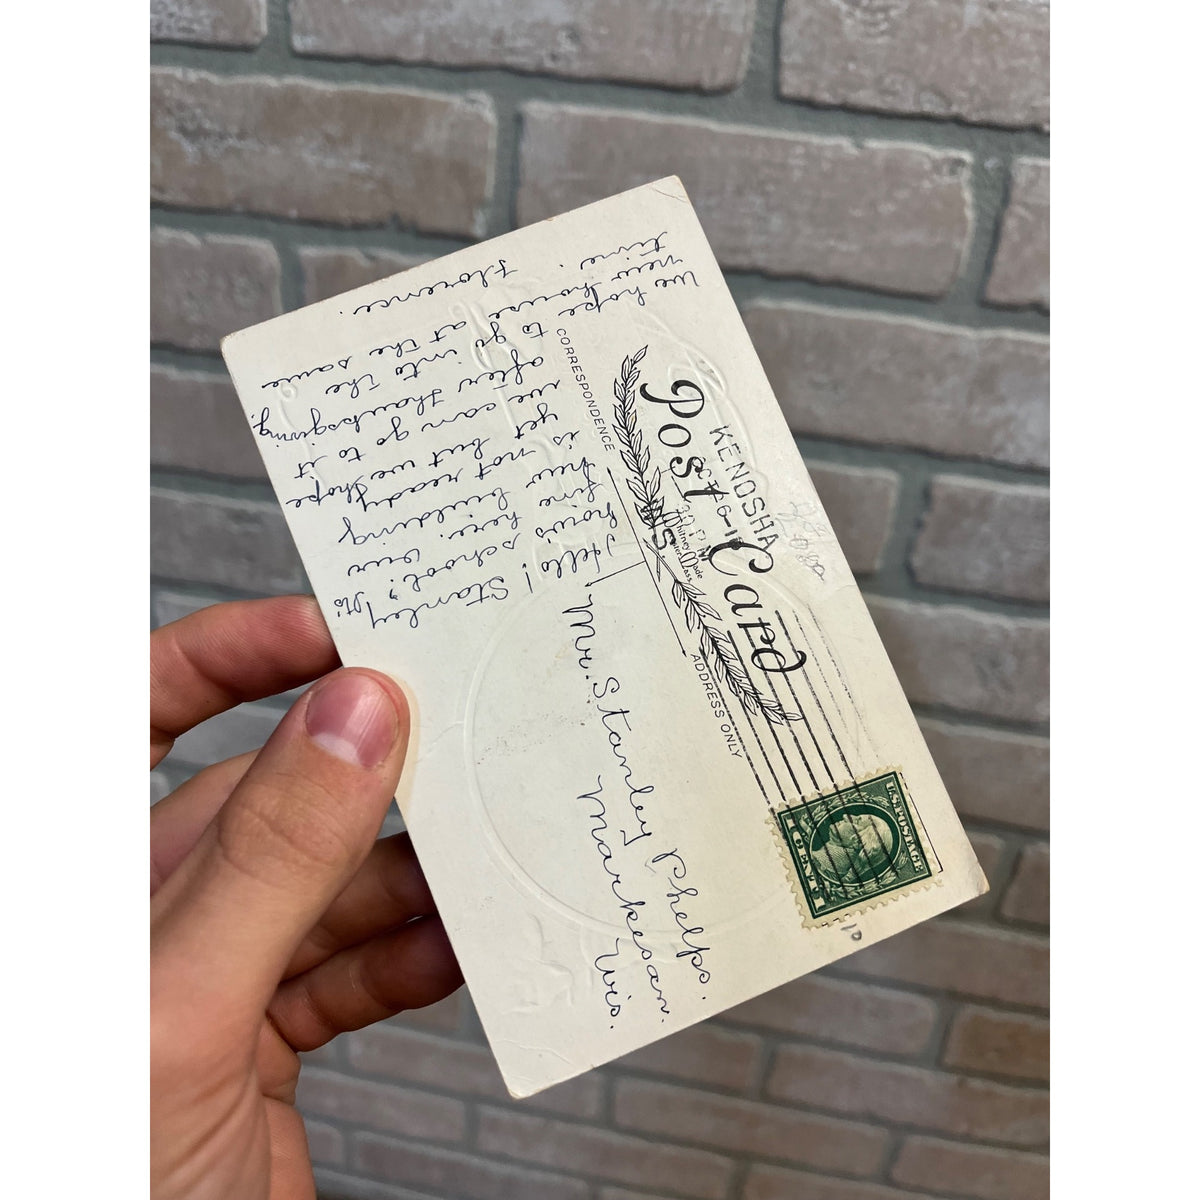 Post Card
CORRESPONDENCE
ADDRESS ONLY
Whitney Made
Worcester, Mass.
KENOSHA
OCT 26
PM
WIS.
U.S. POSTAGE
1 CENT 1
10
Hello! Stanley
how's school? Its
fine here. our
new building
is not ready
yet but we hope
we can go to it
after Thanksgiving.
We hope to go into the
new house at the same
time.
Florence.
Mr. Stanley Phelps.
Markesan.
Wis.